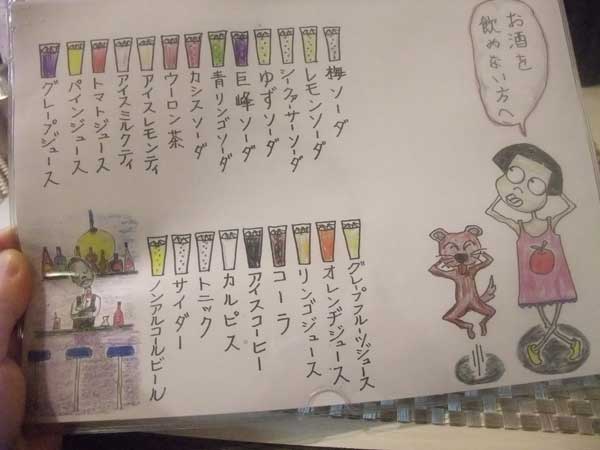 お酒を
飲めない方へ
梅ソーダ
レモンソーダ
シークァーサーソーダ
ゆずソーダ
巨峰ソーダ
青リンゴソーダ
カシスソーダ
ウーロン茶
アイスレモンティ
アイスミルクティ
トマトジュース
パインジュース
グレープジュース
グレープフルーツジュース
オレンヂジュース
リンゴジュース
コーラ
アイスコーヒー
カルピス
トニック
サイダー
ノンアルコールビール